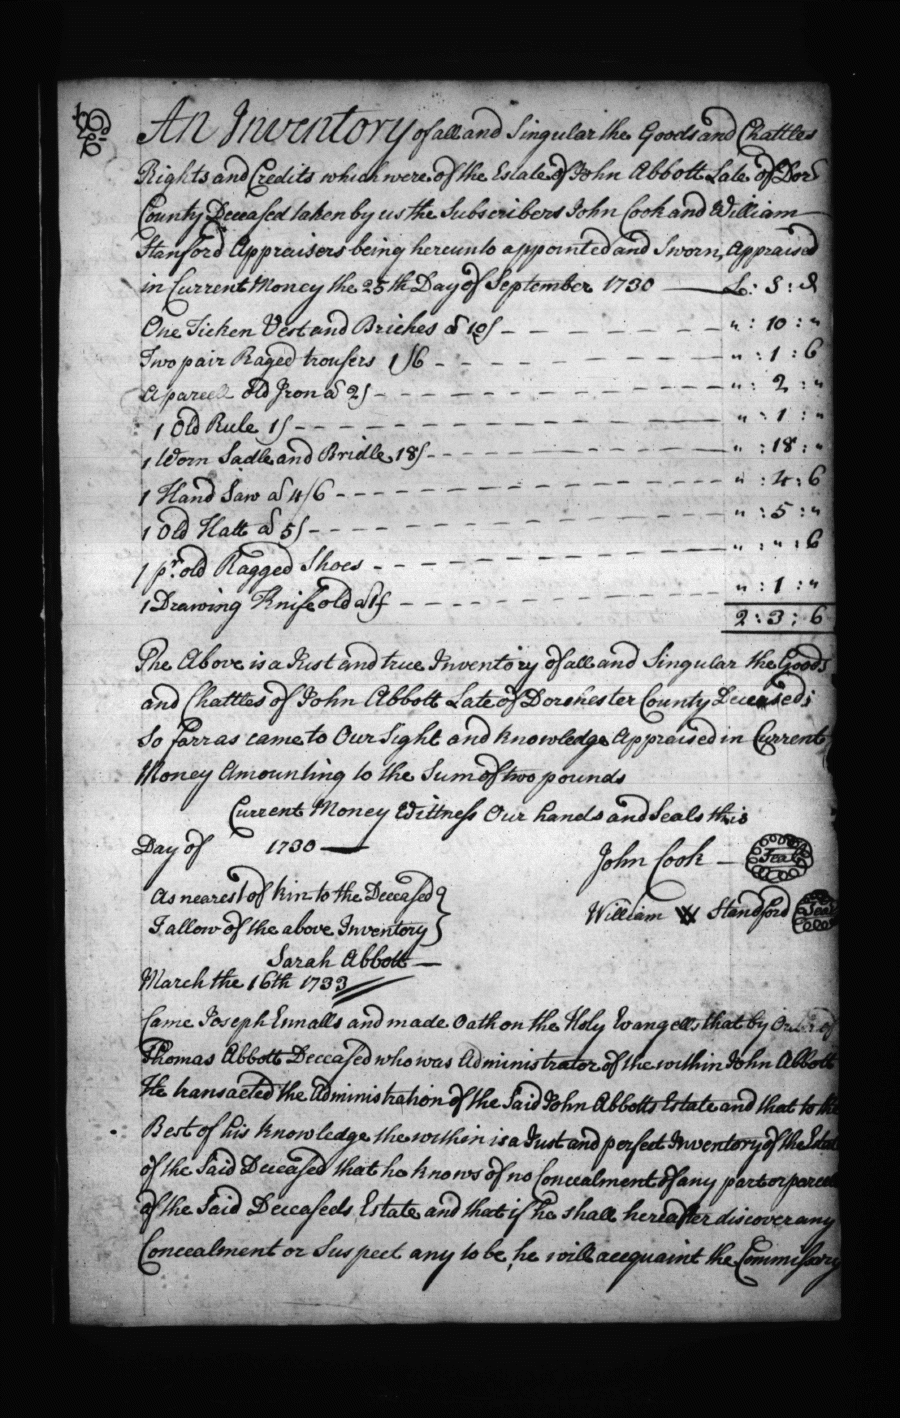 An Inventory of all and Singular the Goods and Chattles
Rights and Credits which were of the Estate of John Abbott Late of Dor
County Deceased taken by us the Subscribers John Cook and William
Stanford Appraisers being hereunto appointed and Sworn, Appraised
in Current Money the 25th Day of September 1730 — £ : S : d
One Ticken Vest and Briches a 10/ - - - " : 10 : "
Two pair Raged trousers 1/6 - - - " : 1 : 6
A parcell Old Iron a 2/ - - - " : 2 : "
1 Old Rule 1/ - - - " : 1 : "
1 Worn Sadle and Bridle 18/ - - - " : 18 : "
1 Hand Saw a 4/6 - - - " : 4 : 6
1 Old Hatt a 5/ - - - " : 5 : "
1 pr. old Ragged Shoes - - - " : " : 6
1 Drawing Knife old a 1/ - - - " : 1 : "
2 : 3 : 6
The Above is a Just and true Inventory of all and Singular the Goods
and Chattles of John Abbott Late of Dorchester County Deceased;
So farr as came to Our Sight and knowledge Appraised in Current
Money Amounting to the Sum of two pounds
Current Money Wittness Our hands and Seals this
Day of 1730 —
John Cook — Seal
As nearest of kin to the Deceased
William W Standford Seal
I allow of the above Inventory
Sarah Abbott —
March the 16th 1733
Came Joseph Ennalls and made Oath on the Holy Evangells that by Order of
Thomas Abbott Deceased who was Administrator of the within John Abbott
He transacted the Administration of the Said John Abbotts Estate and that to the
Best of his knowledge the within is a Just and perfect Inventory of the Estate
of the Said Deceased that he knows of no Concealment of any part or parcell
of the Said Deceaseds Estate and that if he shall hereafter discover any
Concealment or Suspect any to be, he will acequaint the Commissary